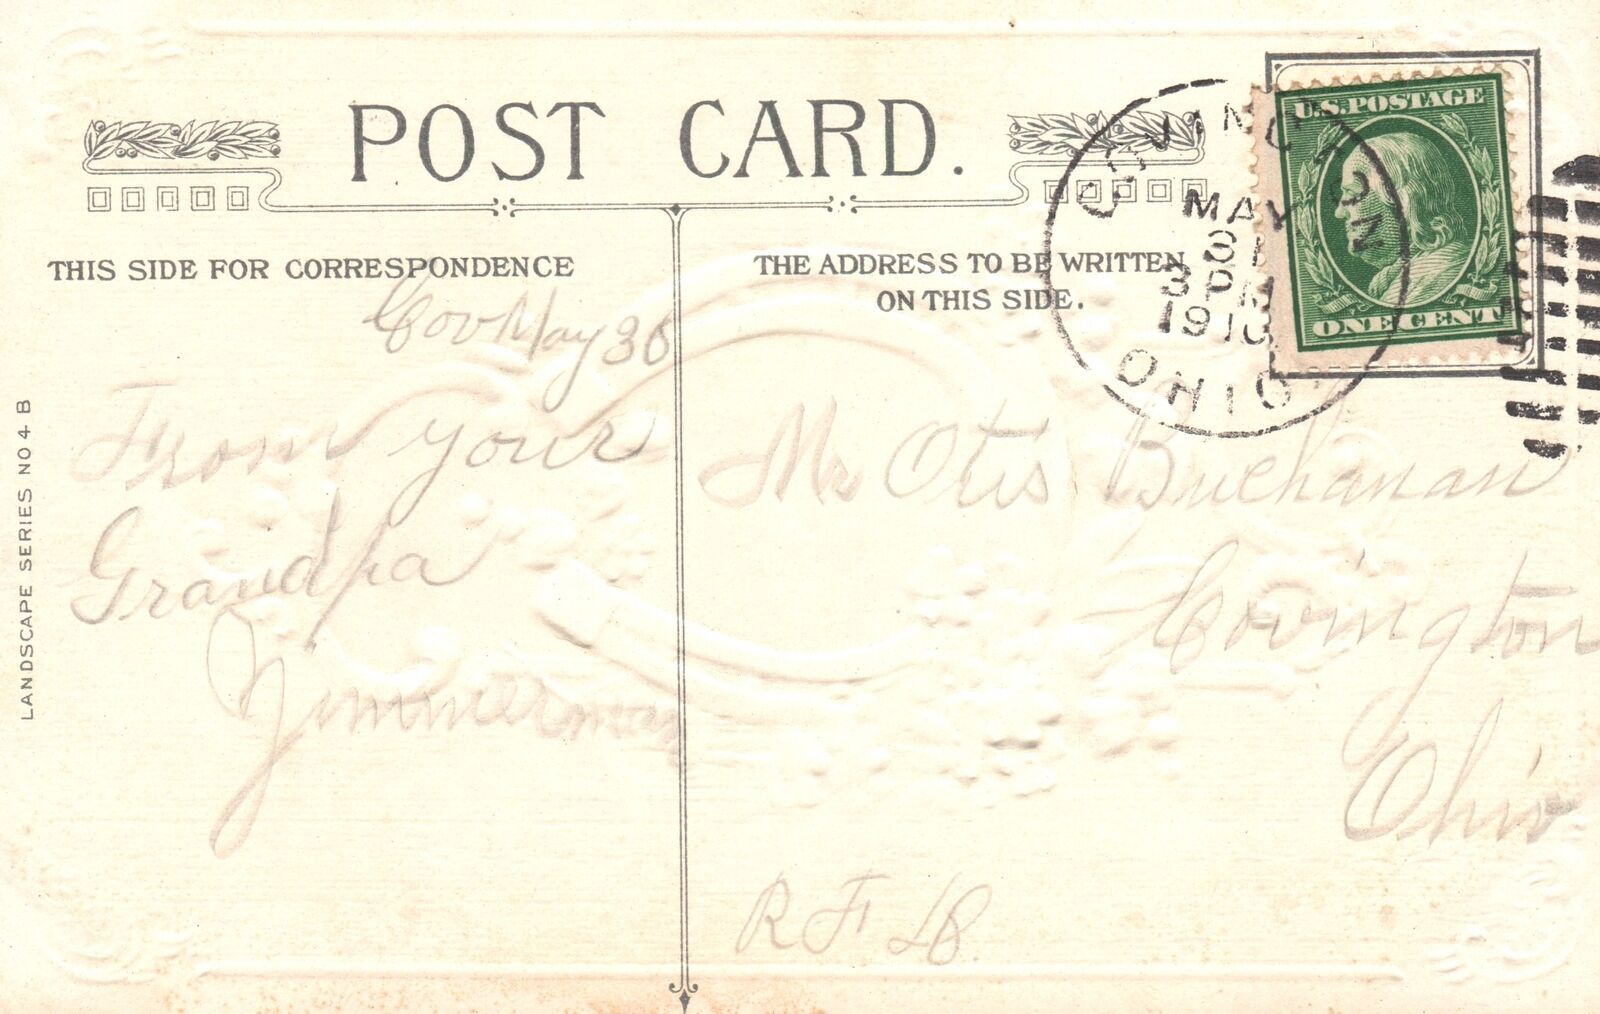 POST CARD.
THIS SIDE FOR CORRESPONDENCE
Cov May 30
From your
Grandpa
Zimmerman
LANDSCAPE SERIES NO 4 B
THE ADDRESS TO BE WRITTEN
ON THIS SIDE.
COVINGTON
MAY
31
3 PM
1910
OHIO
U.S. POSTAGE
ONE CENT
Mr Otis Buchanan
Covington
Ohio